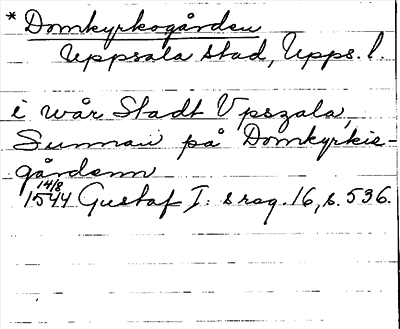 * Domkyrkogården
Uppsala stad, Upps. l.
i wår Stadt Vpszala,
Sunnan på Domkyrkie-
gårdenn
14/8
1544 Gustaf I: s reg. 16, s. 536.